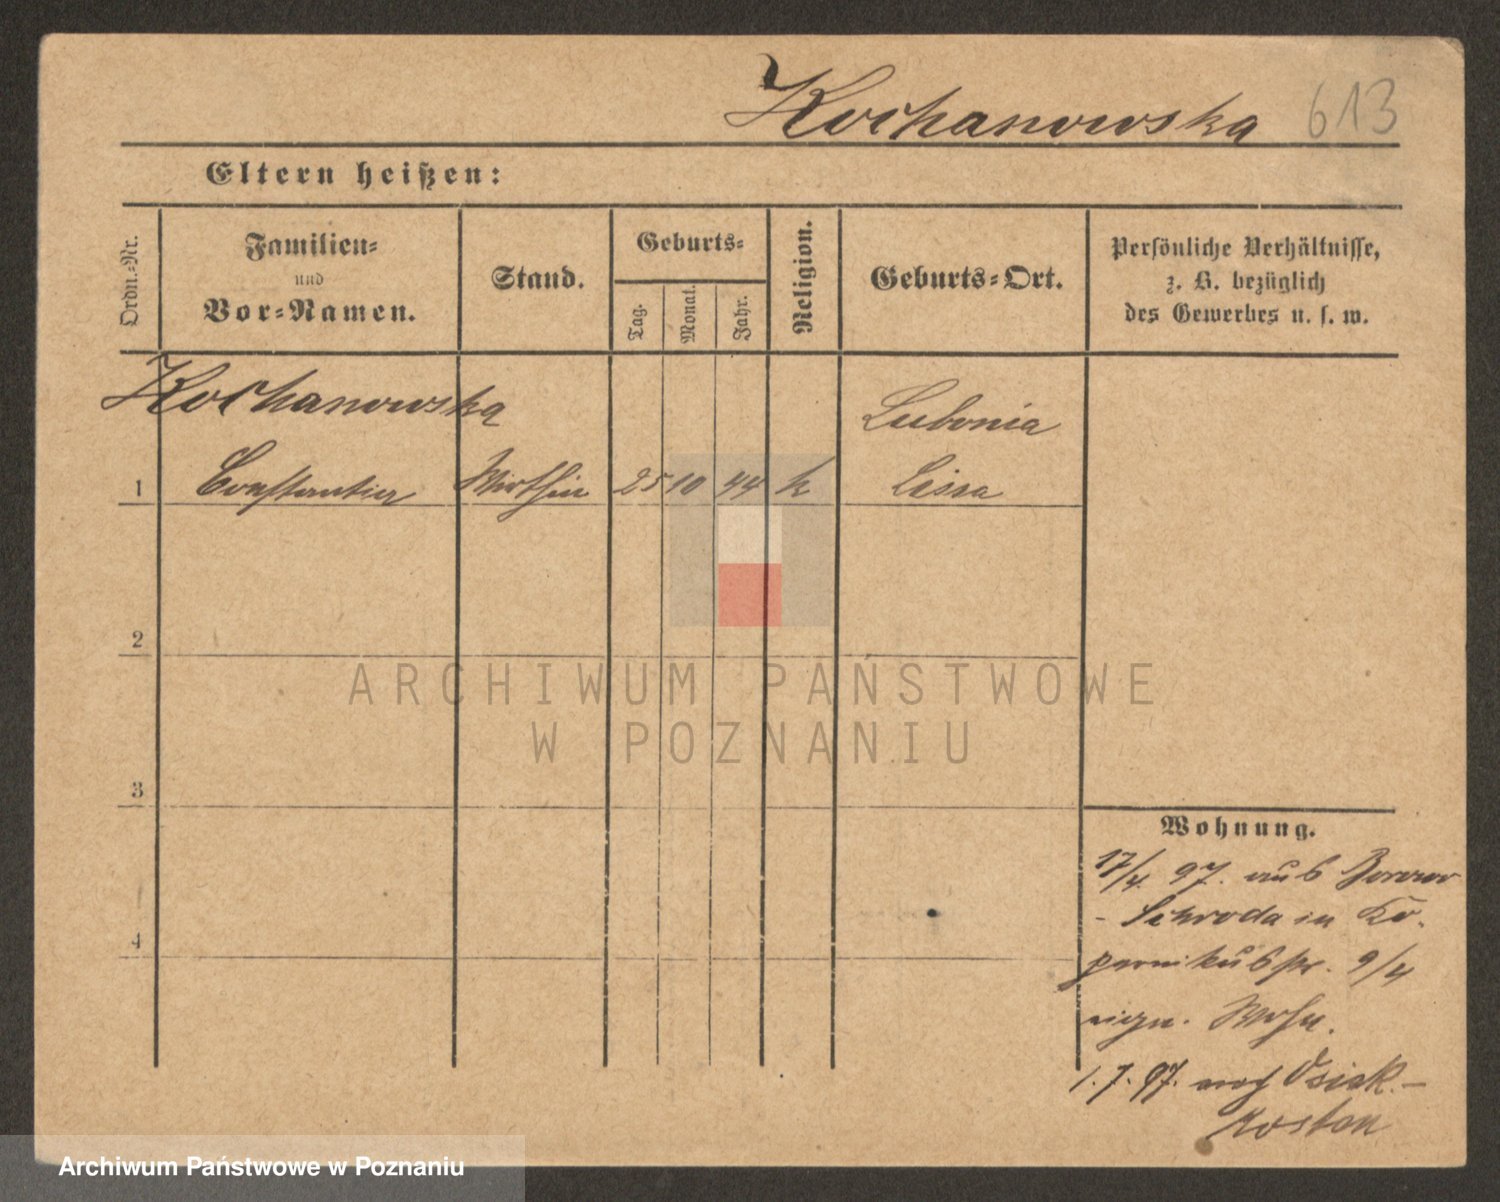 Kochanowska 613
Eltern heißen:
Ordn.-Nr.
Familien-
und
Vor-Namen.
Stand.
Geburts-
Tag.
Monat.
Jahr.
Religion.
Geburts-Ort.
Persönliche Verhältnisse,
z. B. bezüglich
des Gewerbes u. s. w.
Kochanowska
Lubonia
1 Constantia Wirthin 25 10 44 k Lissa
2
3
4
Wohnung.
17/4. 97. aus
- Schroda in Ko-
pernikusstr. 9/4
eign. Wohn.
1. 7. 97. nach Osiek -
Kosten
ARCHIWUM PAŃSTWOWE
W POZNANIU
Archiwum Państwowe w Poznaniu